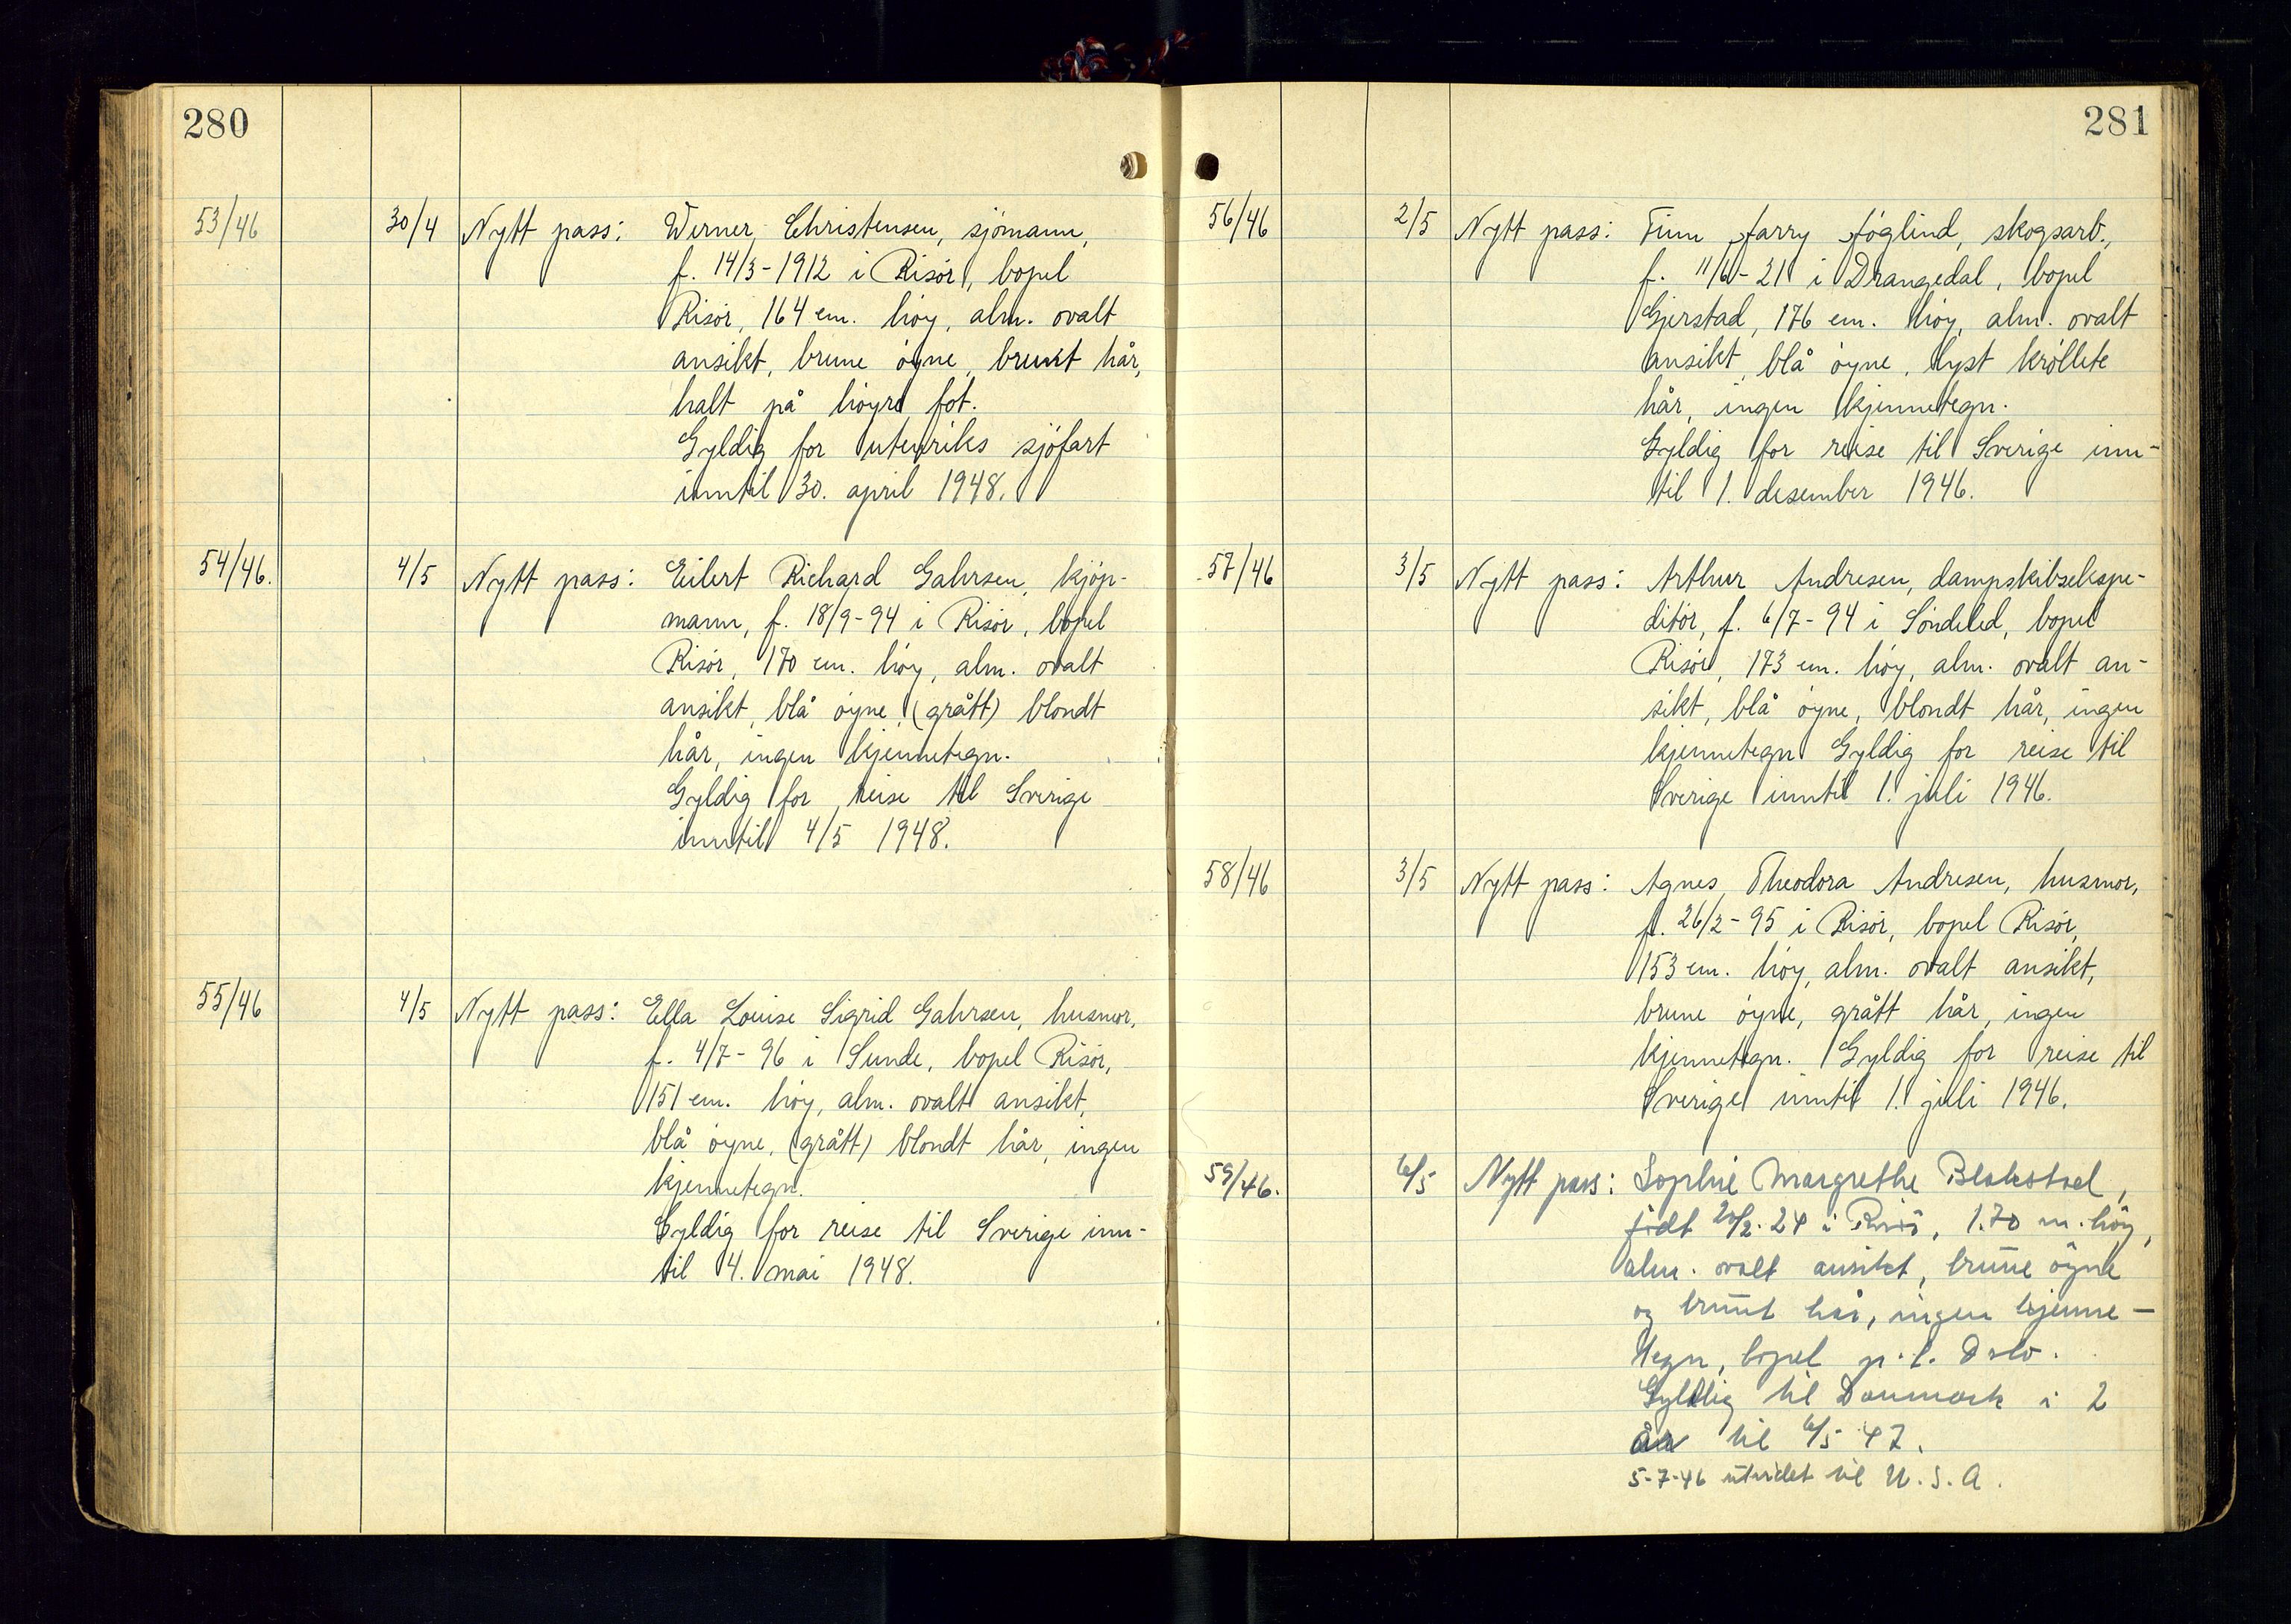 280
53/46 30/4 Nytt pass: Werner Christensen, sjömann,
f. 14/3-1912 i Risör, bopel
Risör, 164 cm. höy, alm. ovalt
ansikt, brune öyne, brunt hår,
halt på höyre fot.
Gyldig for utenriks sjöfart
inntil 30. april 1948.
54/46. 4/5 Nytt pass: Eilert Richard Gahrsen, kjöp-
mann, f. 18/9-94 i Risör, bopel
Risör, 170 cm. höy, alm. ovalt
ansikt, blå öyne, (grått) blondt
hår, ingen kjennetegn.
Gyldig for reise til Sverige
inntil 4/5 1948.
55/46 4/5 Nytt pass: Ella Louise Sigrid Gahrsen, husmor,
f. 4/7-96 i Sunde, bopel Risör,
151 cm. höy, alm. ovalt ansikt,
blå öyne, (grått) blondt hår, ingen
kjennetegn.
Gyldig for reise til Sverige inn-
til 4. mai 1948.
281
56/46 2/5 Nytt pass: Finn Harry Höglind, skogsarb.,
f. 11/6-21 i Drangedal, bopel
Gjerstad, 176 cm. höy, alm. ovalt
ansikt, blå öyne, lyst kröllete
hår, ingen kjennetegn.
Gyldig for reise til Sverige inn-
til 1. desember 1946.
57/46 3/5 Nytt pass: Arthur Andresen, dampskibsekspe-
ditör, f. 6/7-94 i Söndeled, bopel
Risör, 173 cm. höy, alm. ovalt an-
sikt, blå öyne, blondt hår, ingen
kjennetegn Gyldig for reise til
Sverige inntil 1. juli 1946.
58/46 3/5 Nytt pass: Agnes Theodora Andresen, husmor,
f. 26/2-95 i Risör, bopel Risör,
153 cm. höy, alm. ovalt ansikt,
brune öyne, grått hår, ingen
kjennetegn. Gyldig for reise til
Sverige inntil 1. juli 1946.
59/46. 6/5 Nytt pass: Sophie Margrethe Blakstad,
födt 20/2-24 i Risör, 1.70 m. höy,
alm. ovalt ansikt, brune öyne
og brunt hår, ingen kjenne-
tegn, bopel p.t. Oslo.
Gyldig til Danmark i 2
år til 6/5 47.
5-7-46 utvidet til U.S.A.